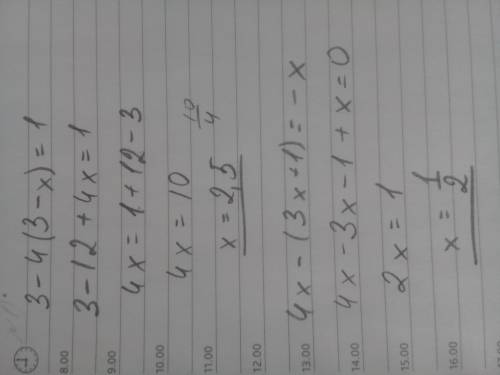 3-4(3-x)=1
3-12+4x=1
4x=1+12-3
4x=10
10
4
x=2,5
4x-(3x+1)=-x
4x-3x-1+x=0
2x=1
x=1/2
8.00
9.00
10.00
11.00
12.00
13.00
14.00
15.00
16.00